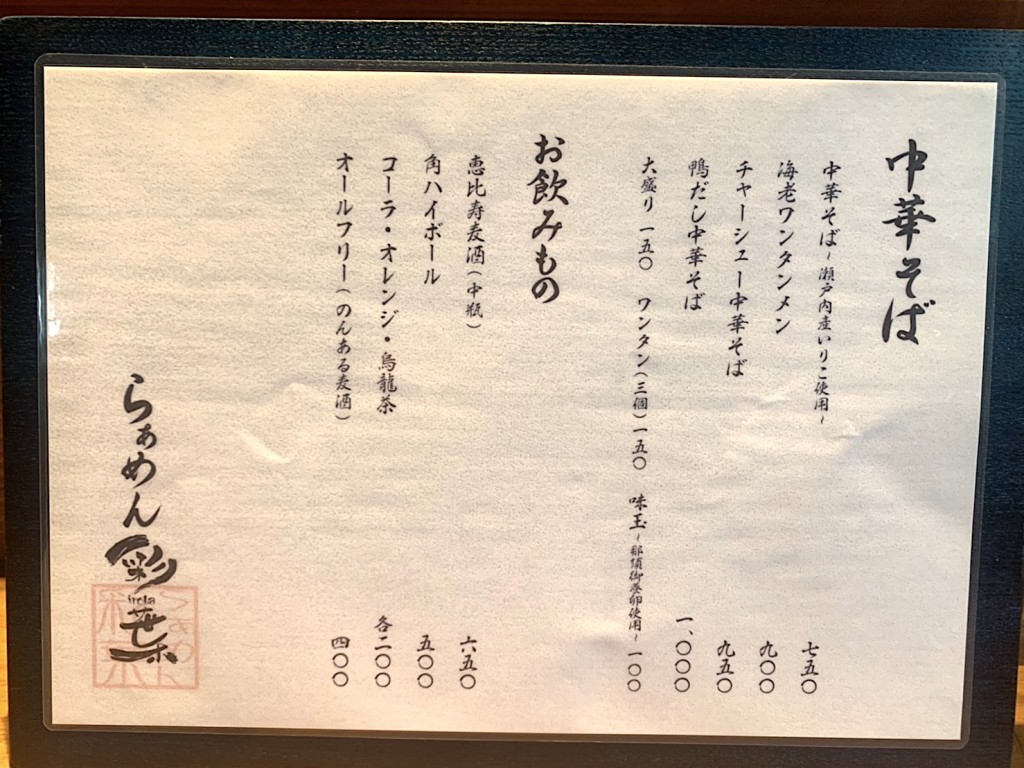 中華そば
中華そば~瀬戸内産いりこ使用~ 七五〇
海老ワンタンメン 九〇〇
チャーシュー中華そば 九五〇
鴨だし中華そば 一、〇〇〇
大盛り 一五〇 ワンタン(三個)一五〇 味玉~那須御養卵使用~一〇〇
お飲みもの
恵比寿麦酒(中瓶) 六五〇
角ハイボール 五〇〇
コーラ・オレンジ・烏龍茶 各二〇〇
オールフリー(のんある麦酒) 四〇〇
らぁめん彩葉
iroha